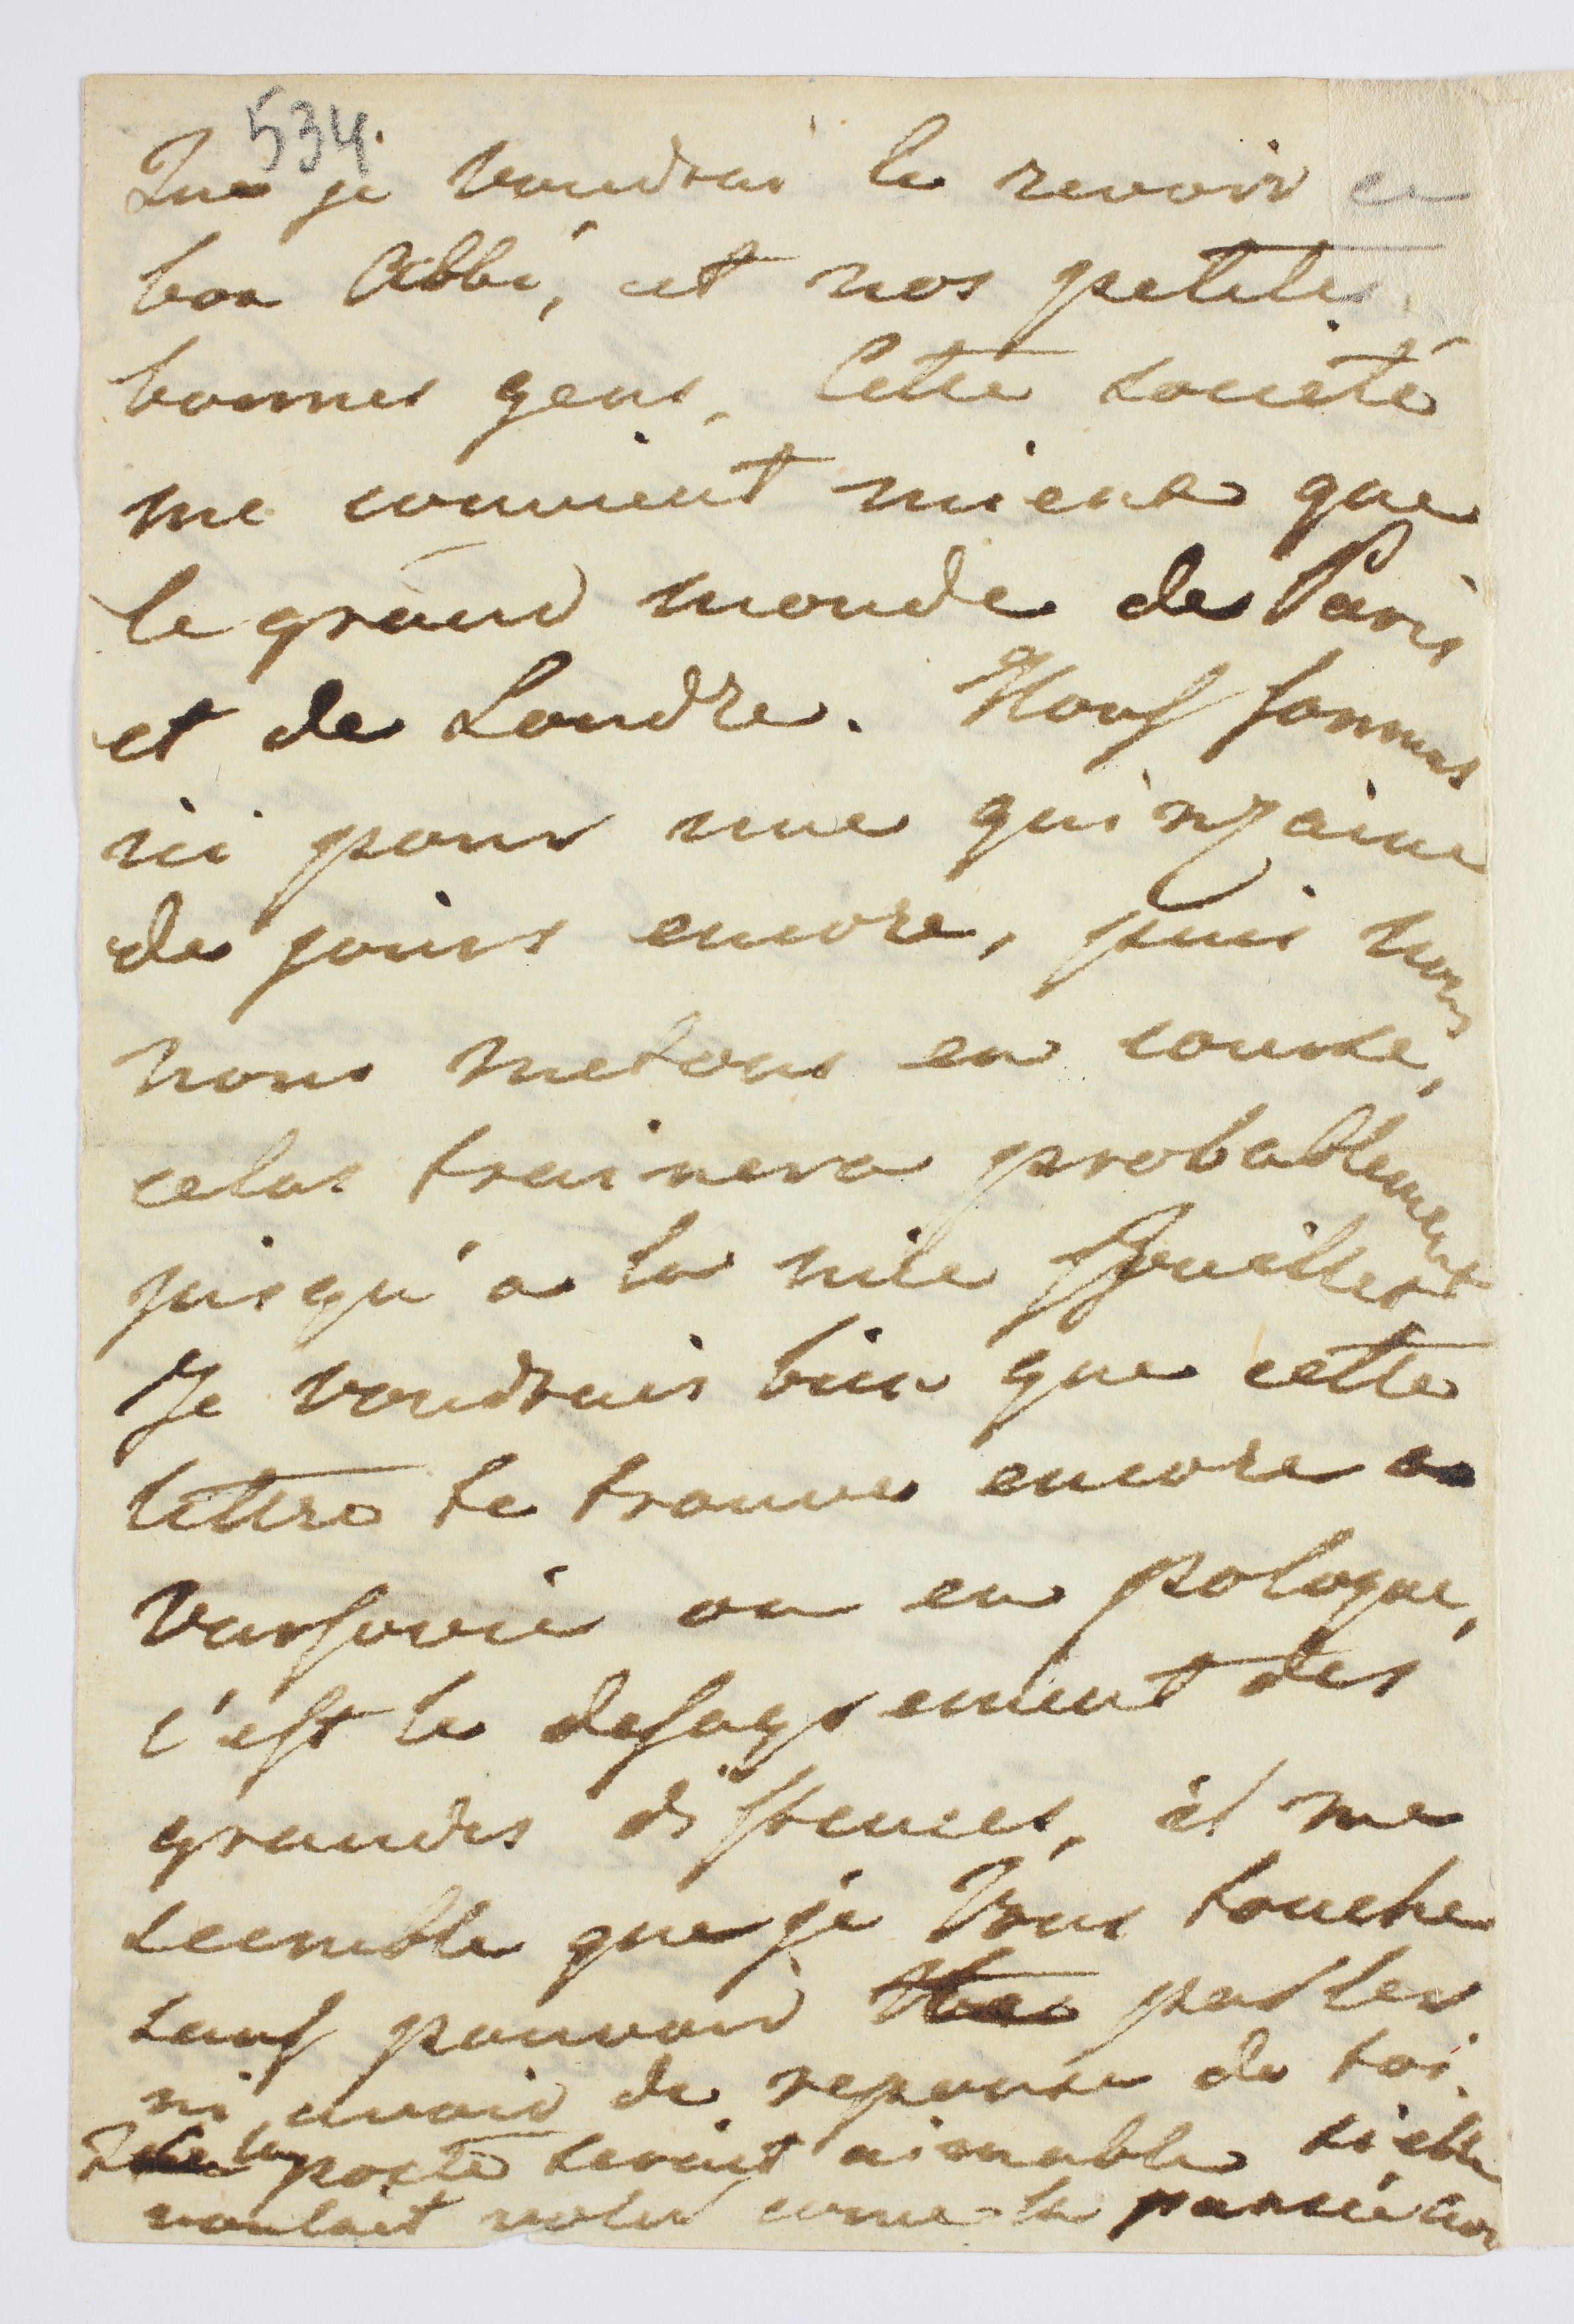 534.
Que je voudrai le revoir ce
bon Abbé, et nos petites
bonnes gens. Cette societé
me convient mieux que
le grand monde de Paris
et de Londre. Nous sommes
ici pour une quinzaine
de jours encore, puis nous
nous metons en course,
celas trainera probablement
jusqu'a la mile Jouillet
Je voudrais bien que cette
lettre te trouve encore a
Varsovie ou en pologne,
c'est le desagrement des
grandes distences, il me
seemble que je Vous touche
sans pouvoir parler
ni avoir de reponse de toi.
Que la poste serait aimable si elle
voulait voler come la